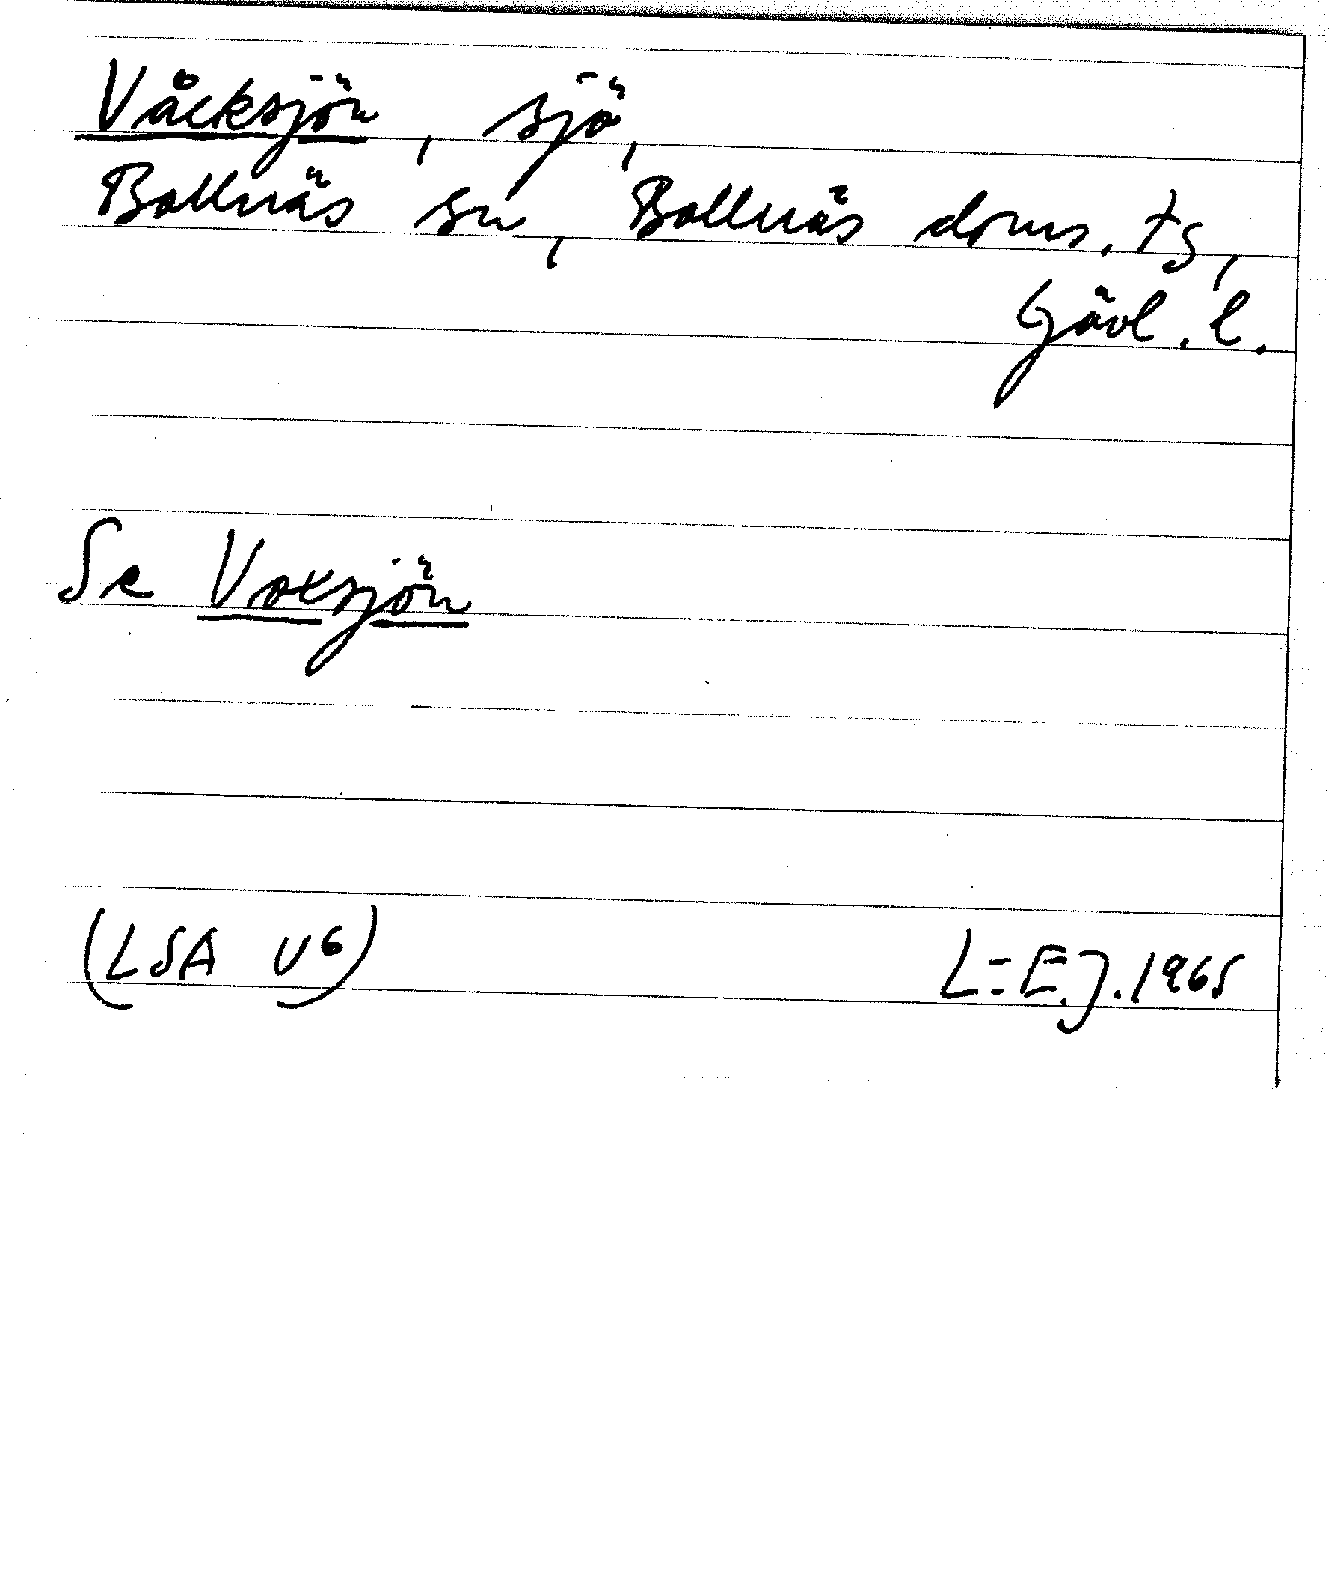 Våcksjön, sjö,
Bollnäs sn, Bollnäs doms. tg,
Gävl. l.
Se Voxsjön
(LSA U6)
L-E.J. 1965